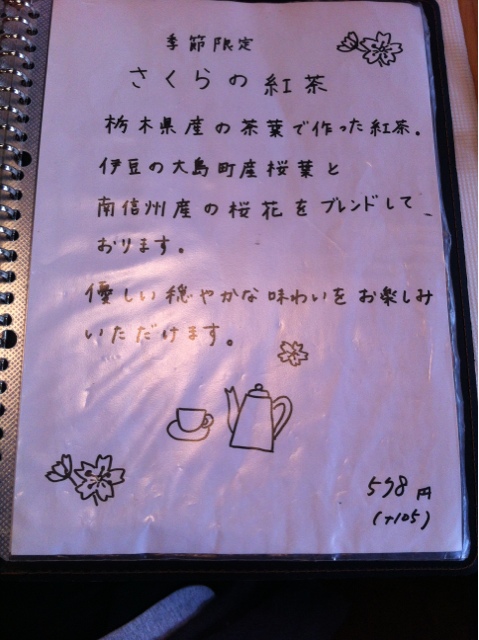 季節限定
さくらの紅茶
栃木県産の茶葉で作った紅茶.
伊豆の大島町産桜葉と
南信州産の桜花をブレンドして、
おります。
優しい穏やかな味わいをお楽しみ
いただけます。
598円
(+105)